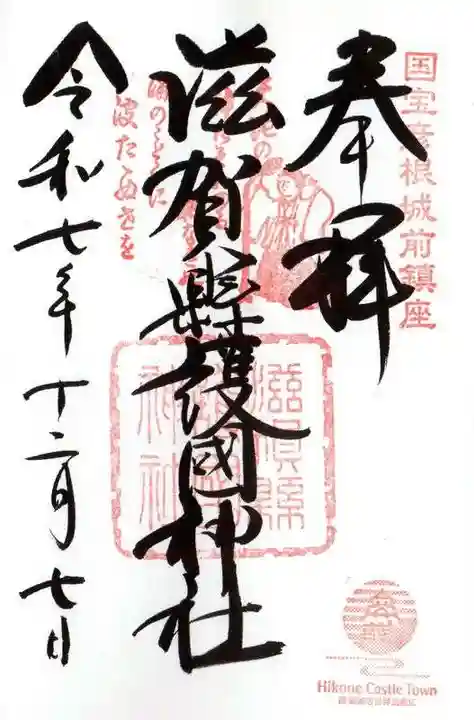 国宝彦根城前鎮座
奉拝
滋賀縣護國神社
令和七年十二月七日
滋賀縣
護國
神社
波たゝぬさを
Hikone Castle Town